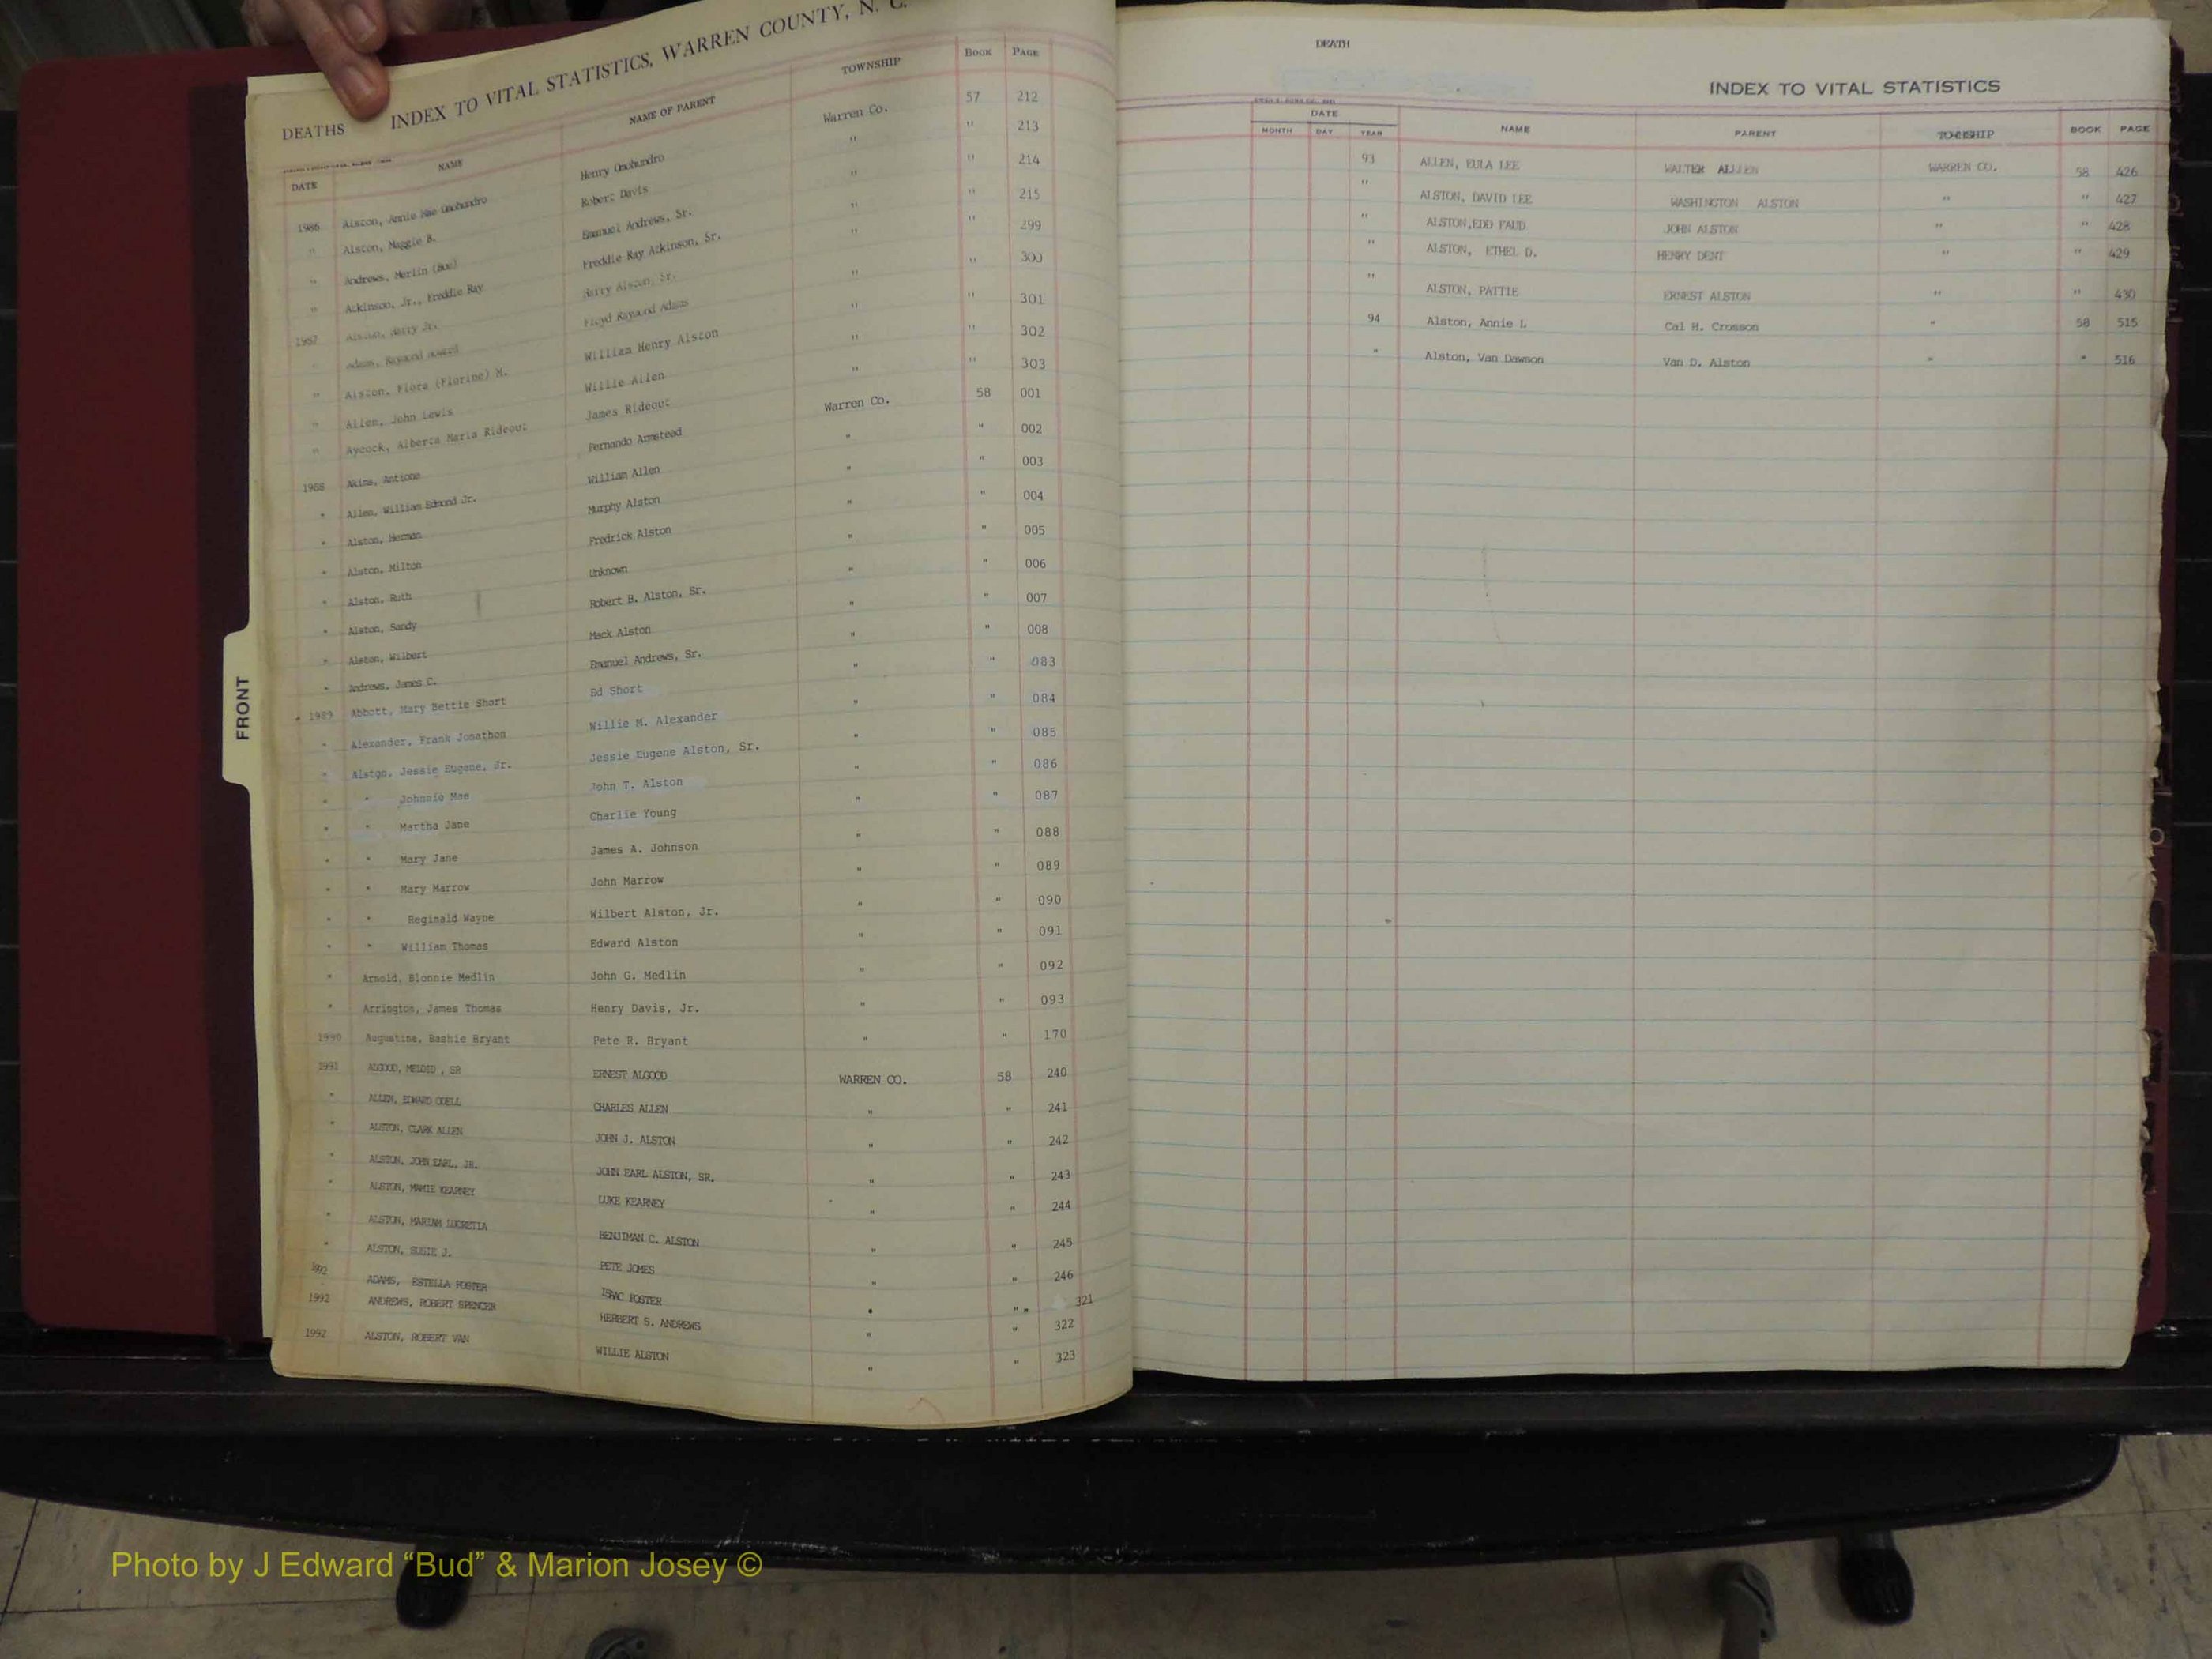 DEATHS INDEX TO VITAL STATISTICS, WARREN COUNTY, N. C.
DATE NAME NAME OF PARENT TOWNSHIP BOOK PAGE
1986 Alston, Annie Mae Omohundro Henry Omohundro Warren Co. 57 212
" Alston, Maggie B. Robert Davis " " 213
" Andrews, Merlin (Bue) Emanuel Andrews, Sr. " " 214
" Atkinson, Jr., Freddie Ray Freddie Ray Atkinson, Sr. " " 215
1987 Alston, Harry Jr. Harry Alston, Sr. " " 299
" Adams, Raymond Howard Floyd Raymond Adams " " 300
" Alston, Flora (Florine) M. William Henry Alston " " 301
" Allen, John Lewis Willie Allen " " 302
" Aycock, Alberta Maria Rideout James Rideout " " 303
1988 Akins, Antione Fernando Armstead Warren Co. 58 001
" Allen, William Edmond Jr. William Allen " " 002
" Alston, Herman Murphy Alston " " 003
" Alston, Milton Fredrick Alston " " 004
" Alston, Ruth Unknown " " 005
" Alston, Sandy Robert B. Alston, Sr. " " 006
" Alston, Wilbert Mack Alston " " 007
" Andrews, James C. Emanuel Andrews, Sr. " " 008
1989 Abbott, Mary Bettie Short Ed Short " " 083
" Alexander, Frank Jonathon Willie M. Alexander " " 084
" Alston, Jessie Eugene, Jr. Jessie Eugene Alston, Sr. " " 085
" " Johnnie Mae John T. Alston " " 086
" " Martha Jane Charlie Young " " 087
" " Mary Jane James A. Johnson " " 088
" " Mary Marrow John Marrow " " 089
" " Reginald Wayne Wilbert Alston, Jr. " " 090
" " William Thomas Edward Alston " " 091
" Arnold, Blonnie Medlin John G. Medlin " " 092
" Arrington, James Thomas Henry Davis, Jr. " " 093
1990 Augustine, Bashie Bryant Pete R. Bryant " " 170
1991 ALGOOD, MELOID , SR ERNEST ALGOOD WARREN CO. 58 240
" ALLEN, EDWARD ODELL CHARLES ALLEN " " 241
" ALSTON, CLARK ALLEN JOHN J. ALSTON " " 242
" ALSTON, JOHN EARL, JR. JOHN EARL ALSTON, SR. " " 243
" ALSTON, MAMIE KEARNEY LUKE KEARNEY " " 244
" ALSTON, MARIAM LUCRETIA BENJIMAN C. ALSTON " " 245
" ALSTON, SUSIE J. PETE JONES " " 246
1992 ADAMS, ESTELLA FOSTER ISAAC FOSTER " " " 321
1992 ANDREWS, ROBERT SPENCER HERBERT S. ANDREWS " " 322
1992 ALSTON, ROBERT VAN WILLIE ALSTON " " 323
FRONT
DEATH
INDEX TO VITAL STATISTICS
DATE
MONTH DAY YEAR NAME PARENT TOWNSHIP BOOK PAGE
93 ALLEN, EULA LEE WALTER ALLLEN WARREN CO. 58 426
" ALSTON, DAVID LEE WASHINGTON ALSTON " " 427
" ALSTON,EDD FAUD JOHN ALSTON " " 428
" ALSTON, ETHEL D. HENRY DENT " " 429
" ALSTON, PATTIE ERNEST ALSTON " " 430
94 Alston, Annie L Cal H. Crosson " 58 515
" Alston, Van Dawson Van D. Alston " " 516
Photo by J Edward “Bud” & Marion Josey ©